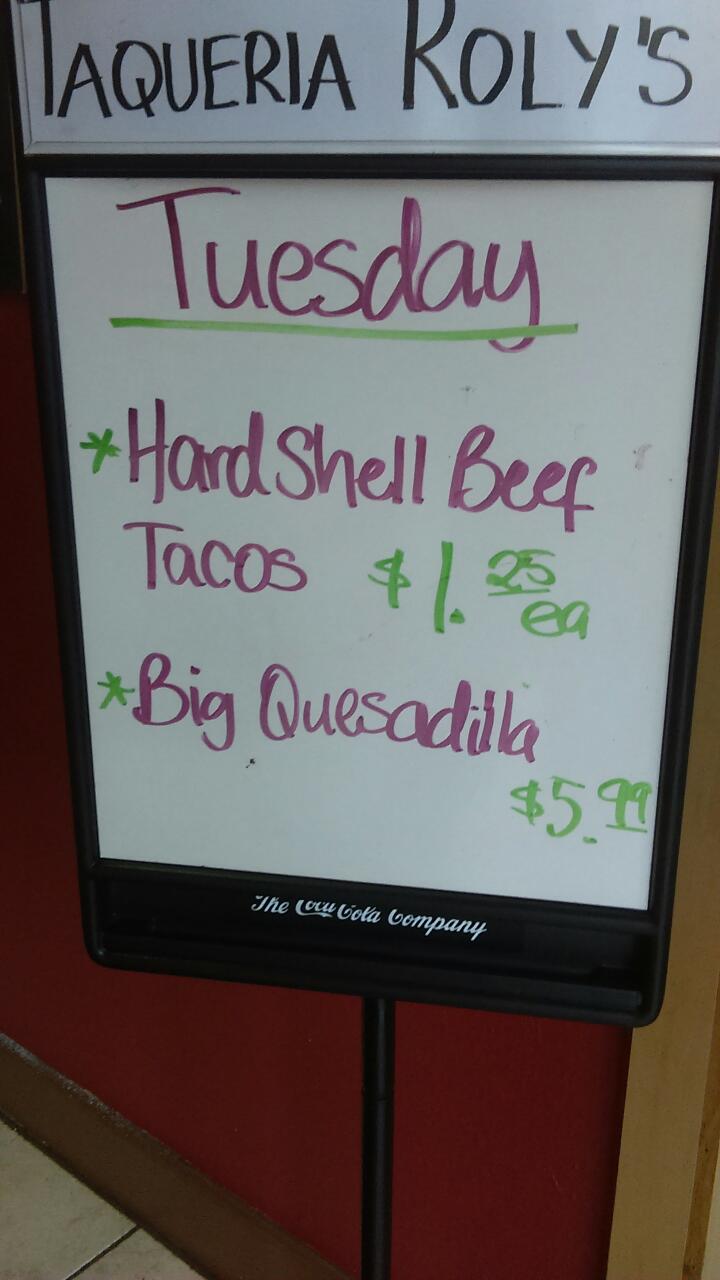 TAQUERIA ROLY'S
Tuesday
*Hard Shell Beef
Tacos $1.25
ea
*Big Quesadilla
$5.99
The Coca Cola Company